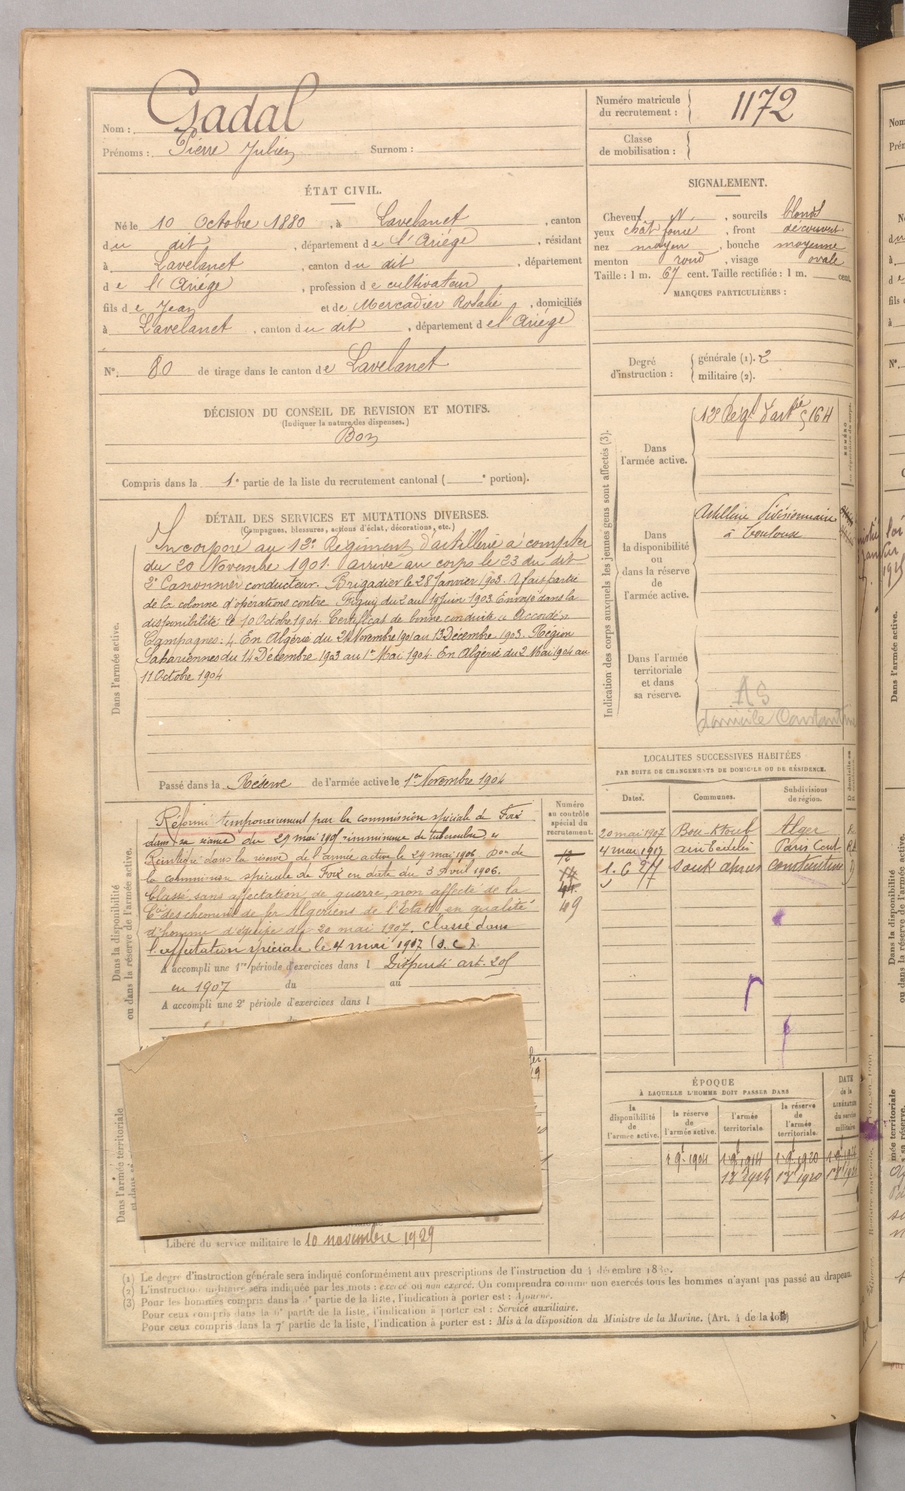 Nom : Gadal
Prénoms : Pierre Julien Surnom :
Numéro matricule du recrutement : 1172
Classe de mobilisation :
ÉTAT CIVIL.
Né le 10 Octobre 1880, à Lavelanet, canton
du dit, département de l'Ariége, résidant
à Lavelanet, canton du dit, département
de l'Ariége, profession de cultivateur
fils de Jean et de Mercadier Rosalie, domiciliés
à Lavelanet, canton du dit, département de l'Ariége
N° 80 de tirage dans le canton de Lavelanet
SIGNALEMENT.
Cheveux, sourcils blonds
yeux chât foncé, front découvert
nez moyen, bouche moyenne
menton rond, visage ovale
Taille : 1 m. 67 cent. Taille rectifiée : 1 m. cent.
MARQUES PARTICULIÈRES :
Degré d'instruction : générale (1). 2
militaire (2).
DÉCISION DU CONSEIL DE REVISION ET MOTIFS.
(Indiquer la nature des dispenses.)
Bon
Compris dans la 1e partie de la liste du recrutement cantonal ( e portion).
DÉTAIL DES SERVICES ET MUTATIONS DIVERSES.
(Campagnes, blessures, actions d'éclat, décorations, etc.)
Dans l'armée active.
Incorporé au 13e Régiment d'artillerie à compter
du 20 Novembre 1901. Arrivé au corps le 23 du dit
2e Canonnier conducteur. Brigadier le 28 Janvier 1903. A fait partie
de la colonne d'opérations contre Figuig du 2 au 19 juin 1903. Envoyé dans la
disponibilité le 10 Octobre 1904. Certificat de bonne conduite " Accordé "
Campagnes : En Algérie du 24 Novembre 1901 au 13 Décembre 1903. Région
Sahariennes du 14 Décembre 1903 au 1er Mai 1904. En Algérie du 2 Mai 1904 au
11 Octobre 1904
Passé dans la Réserve de l'armée active le 1er Novembre 1904
Indication des corps auxquels les jeunes gens sont affectés (3).
Dans l'armée active.
13e Regt d'artie 164
Dans la disponibilité ou dans la réserve de l'armée active.
Artillerie divisionnaire
à Toulouse
Dans l'armée territoriale et dans sa réserve.
AS
domicile Constantine
Dans la disponibilité ou dans la réserve de l'armée active.
Réformé temporairement par la commission spéciale de Foix
dans sa séance du 29 mai 1905 imminence de tuberculose
Réintégré dans la réserve de l'armée active le 29 mai 1906. Don de
la commission spéciale de Foix en date du 3 Avril 1906.
Classé sans affectation de guerre, non affecté de la
Cie des chemins de fer Algériens de l'Etat en qualité
d'homme d'équipe du 20 mai 1907. Classé dans
l'affectation spéciale le 4 mai 1907 (S.C.)
A accompli une 1re période d'exercices dans l Dispensé art. 205
en 1907 du au
A accompli une 2e période d'exercices dans l
Numéro au contrôle spécial du recrutement.
49
LOCALITÉS SUCCESSIVES HABITÉES
PAR SUITE DE CHANGEMENTS DE DOMICILE OU DE RÉSIDENCE.
Dates. Communes. Subdivisions de région.
20 mai 1907 Bou-Ktoub Alger
4 mai 1917
Souk ahras Constantine
ÉPOQUE
À LAQUELLE L'HOMME DOIT PASSER DANS
la disponibilité de l'armée active.
la réserve de l'armée active.
l'armée territoriale.
la réserve de l'armée territoriale.
DATE de la LIBÉRATION du service militaire
1 9 1904
Dans l'armée territoriale
Libéré du service militaire le 10 novembre 1929
(1) Le degré d'instruction générale sera indiqué conformément aux prescriptions de l'instruction du 4 décembre
(2) L'instruction militaire sera indiquée par les mots : exercé ou non exercé. On comprendra comme non exercés tous les hommes n'ayant pas passé au drapeau.
(3) Pour les hommes compris dans la 5e partie de la liste, l'indication à porter est : Ajourné.
Pour ceux compris dans la 6e partie de la liste, l'indication à porter est : Service auxiliaire.
Pour ceux compris dans la 7e partie de la liste, l'indication à porter est : Mis à la disposition du Ministre de la Marine. (Art. 4 de la loi)